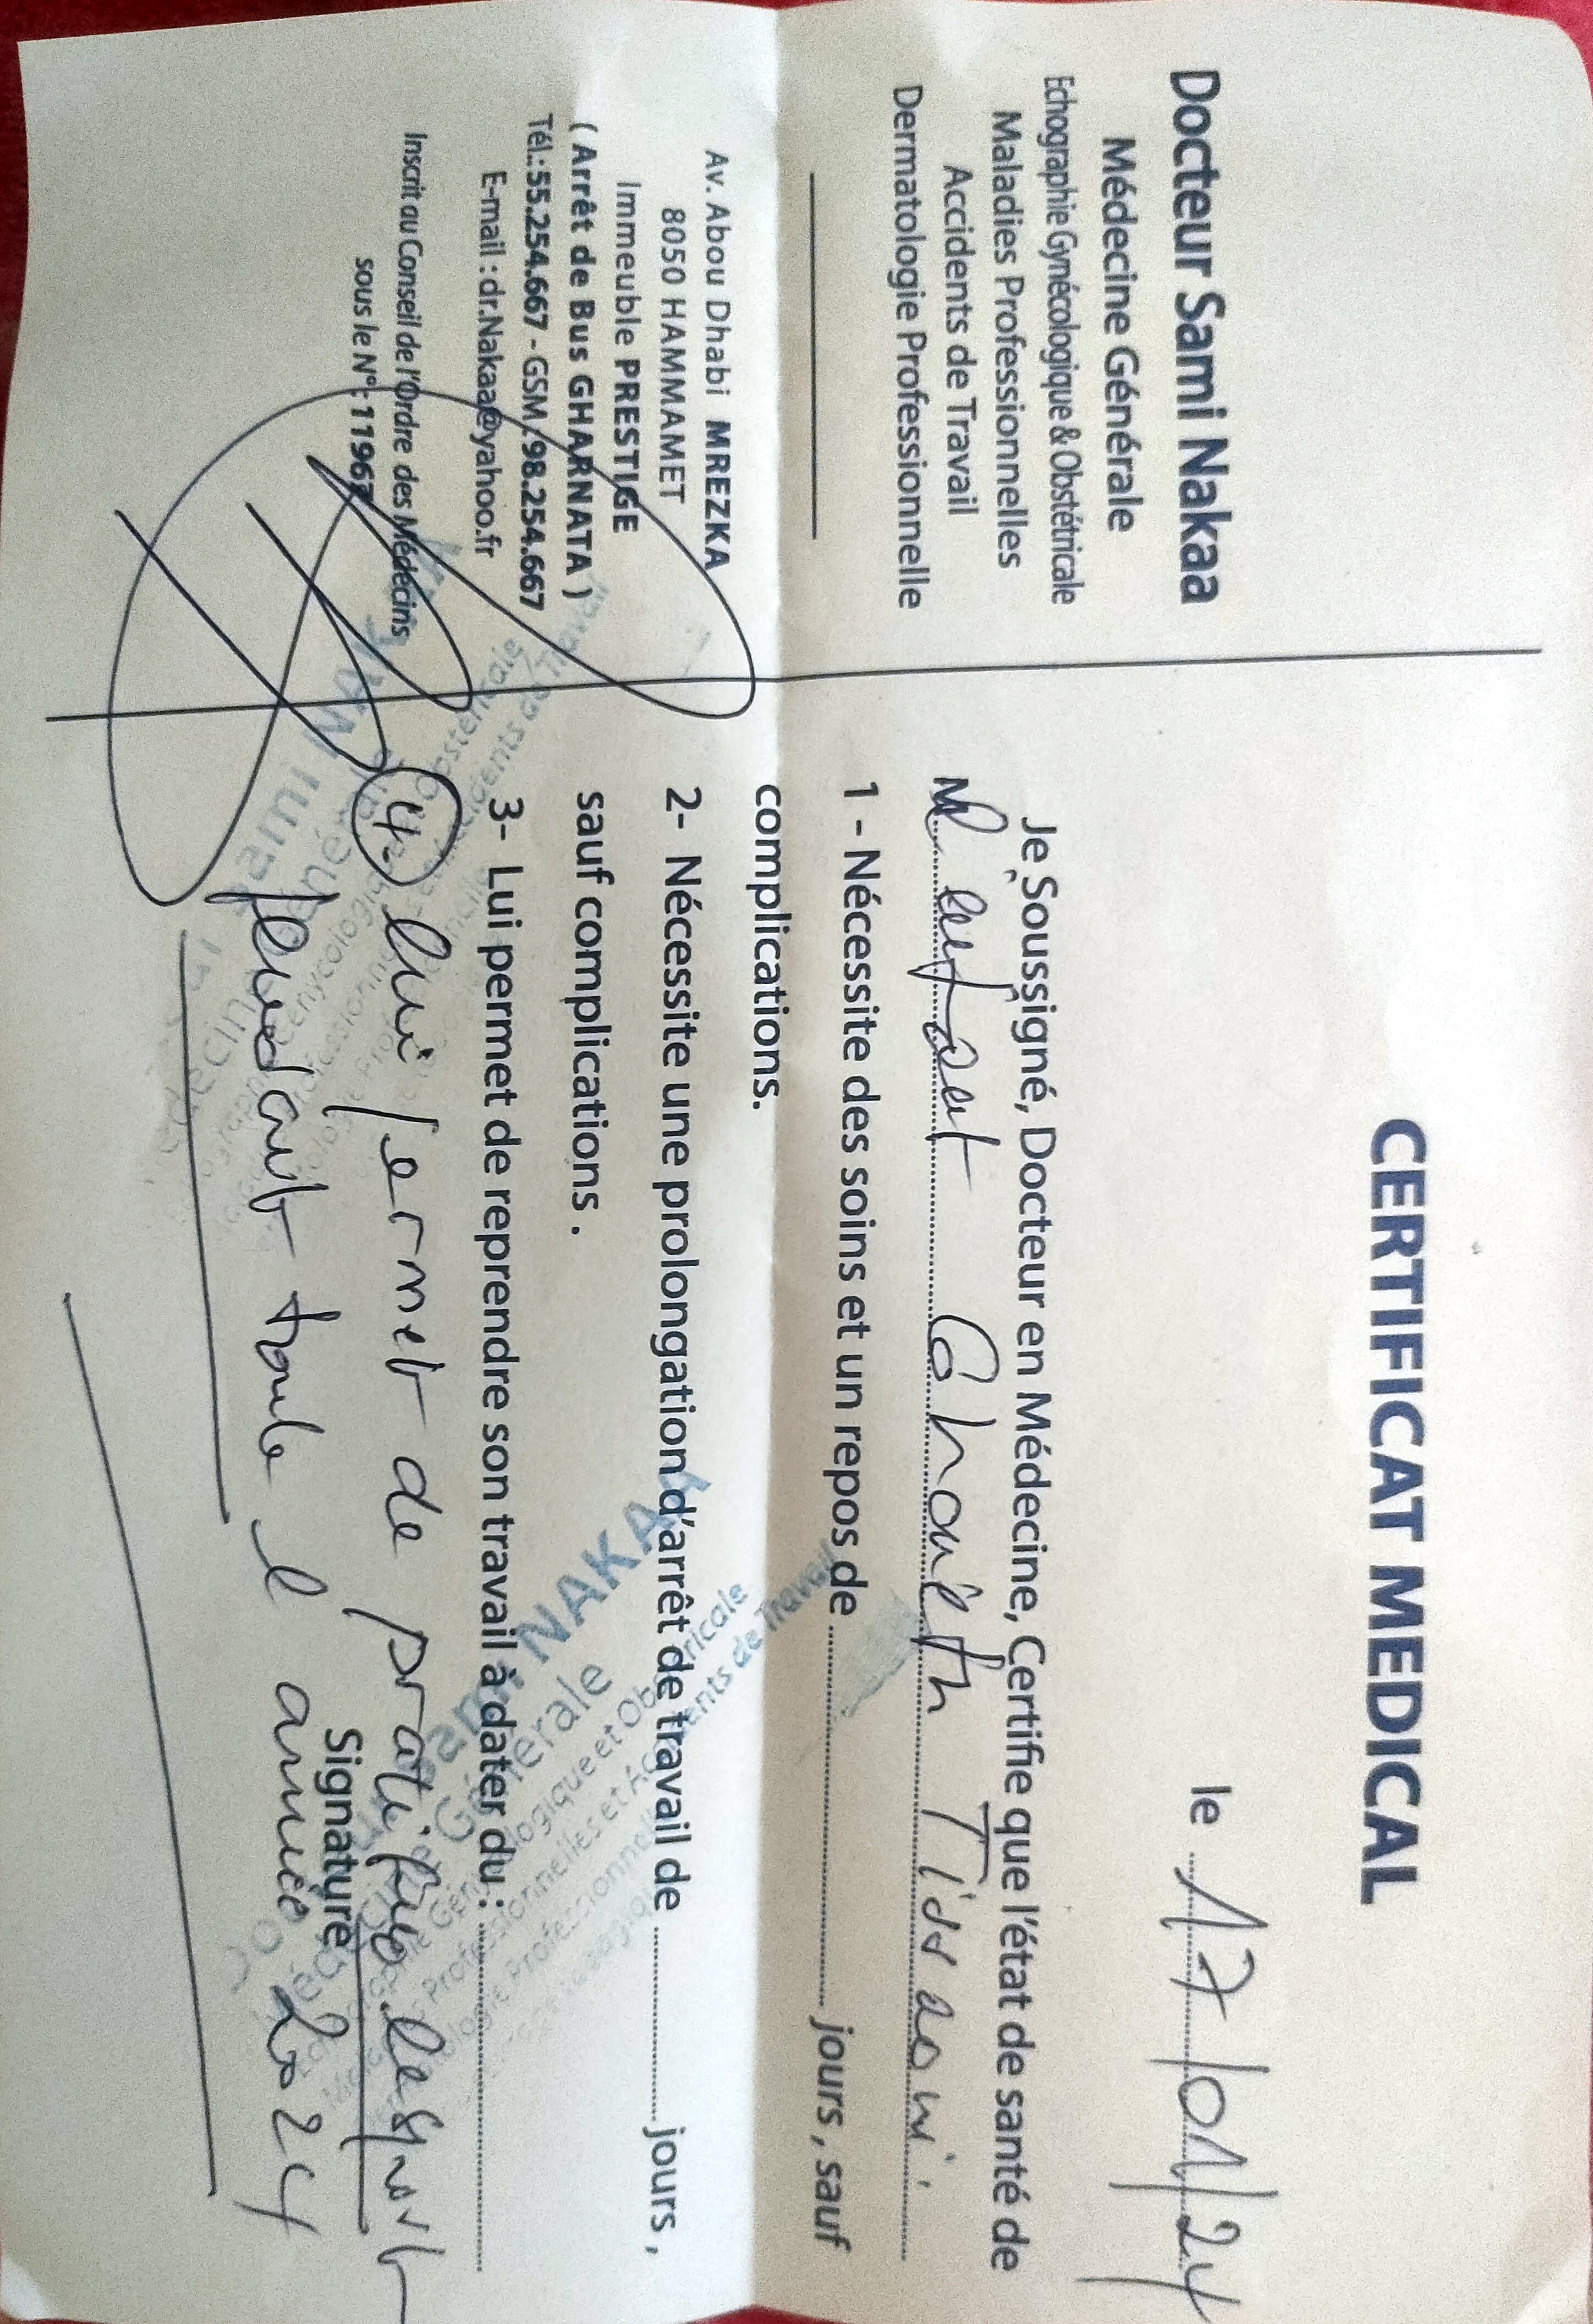 Docteur Sami Nakaa
Médecine Générale
Echographie Gynécologique & Obstétricale
Maladies Professionnelles
Accidents de Travail
Dermatologie Professionnelle
Av. Abou Dhabi MREZKA
8050 HAMMAMET
Immeuble PRESTIGE
( Arrêt de Bus GHARNATA )
Tél.: 55.254.667 - GSM : 98.254.667
E-mail : dr.Nakaa@yahoo.fr
Inscrit au Conseil de l'Ordre des Médecins
sous le N°: 11967
CERTIFICAT MEDICAL
le 17/01/24
Je Soussigné, Docteur en Médecine, Certifie que l'état de santé de
Tissaoui
1 - Nécessite des soins et un repos de jours , sauf
complications.
2- Nécessite une prolongation d'arrêt de travail de jours ,
sauf complications .
3- Lui permet de reprendre son travail à dater du :
4- lui permet de pratiquer le sport
Signature
pendant toute l'année 2024
Sami NAKAA
Générale